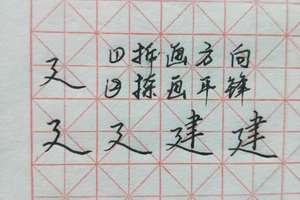 廴 ①折画方向
②捺画平锋
廴 廴 建 建